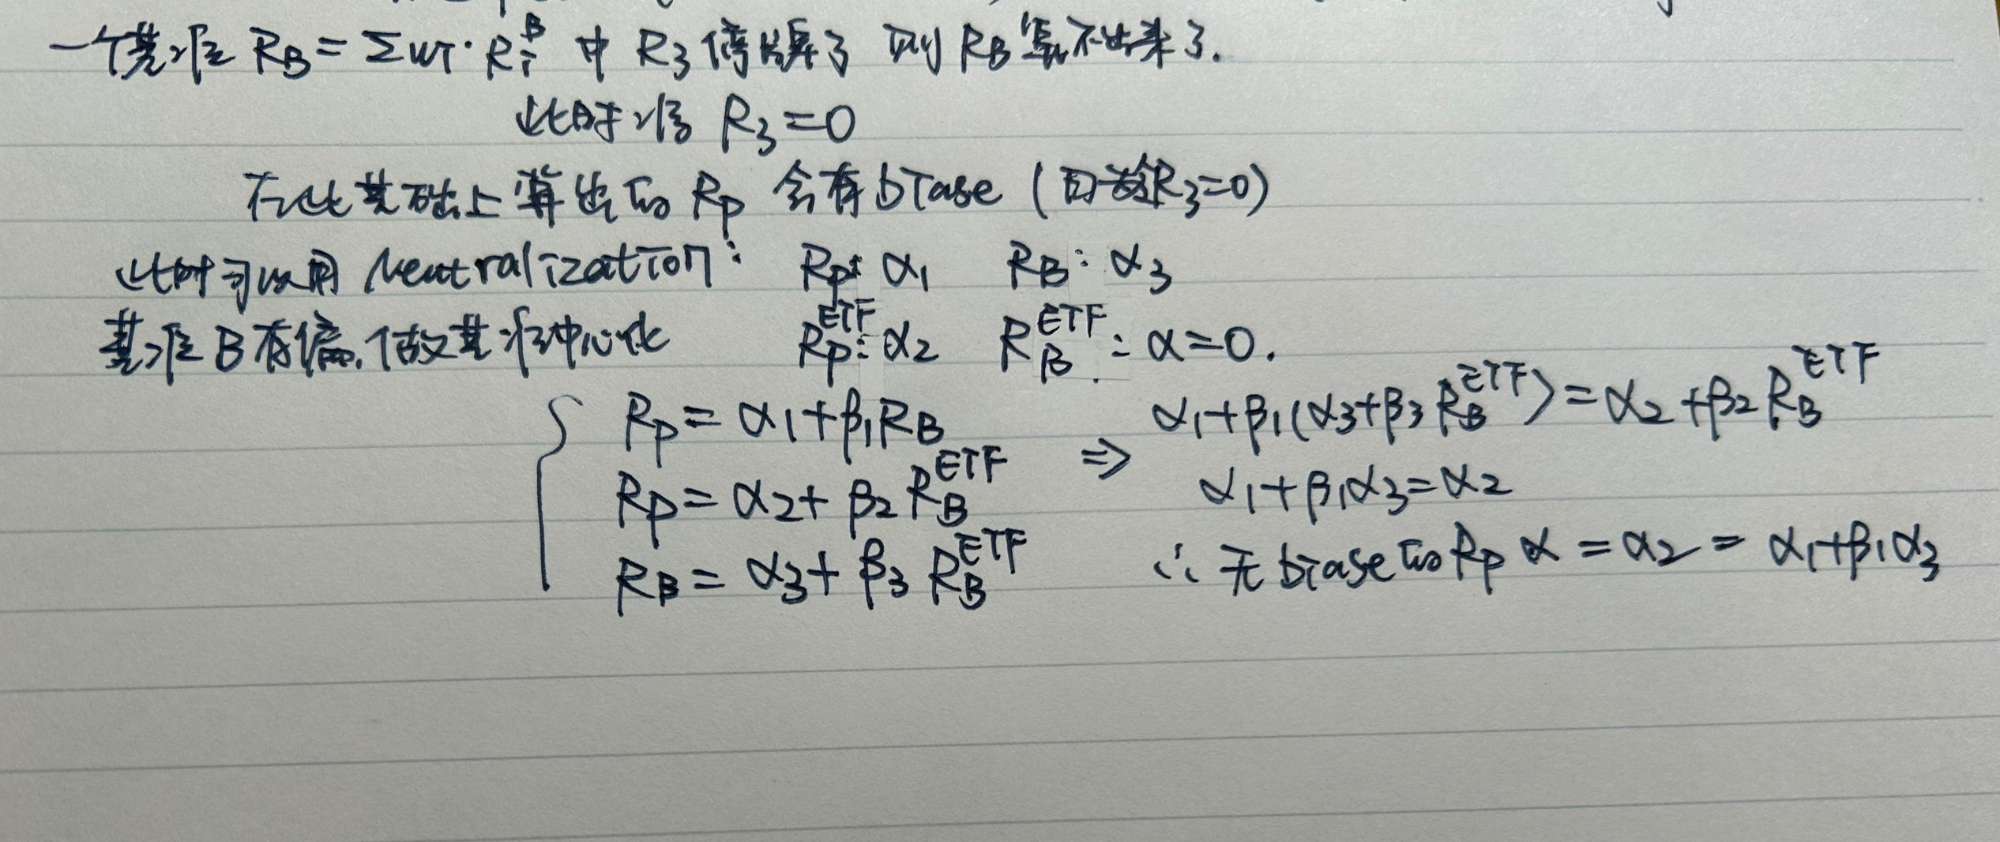 一个基准 R_B = Σwi·R_i^B 中 R_3 停牌了 则 R_B 算不出来了.
此时 R_3 = 0
在此基础上算出的 R_p 会有 biase (因为 R_3=0)
此时可以用 Neutralization: R_p: α_1 R_B: α_3
基准 B 有偏,做基准中心化 R_p^ETF: α_2 R_B^ETF: α=0.
R_p = α_1+β_1R_B ⇒ α_1+β_1(α_3+β_3 R_B^ETF) = α_2+β_2 R_B^ETF
R_p = α_2+β_2 R_B^ETF α_1+β_1α_3=α_2
R_B = α_3+β_3 R_B^ETF ∴ 无 biase 的 R_p α = α_2 = α_1+β_1α_3